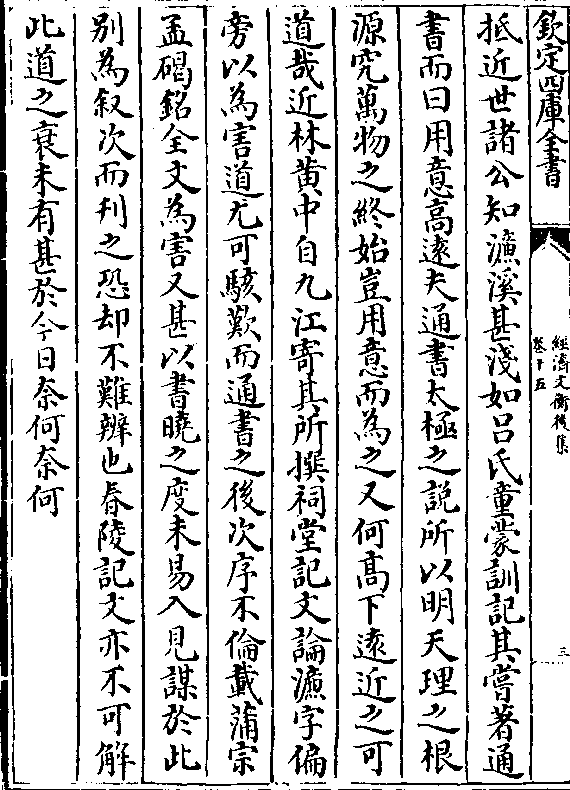 欽定四庫全書
經濟文衡後集
卷十五
三
抵近世諸公知濂溪甚淺如呂氏童蒙訓記其嘗著通
書而曰用意高逺夫通書太極之說所以明天理之根
源究萬物之終始豈用意而為之又何髙下逺近之可
道哉近林黄中自九江寄其所撰祠堂記文論濂字偏
旁以為害道尤可駭歎而通書之後次序不倫載蒲宗
孟碣銘全文為害又甚以書曉之度未易入見謀於此
别為叙次而刊之恐却不難辨也舂陵記文亦不可解
此道之衰未有甚於今日奈何奈何